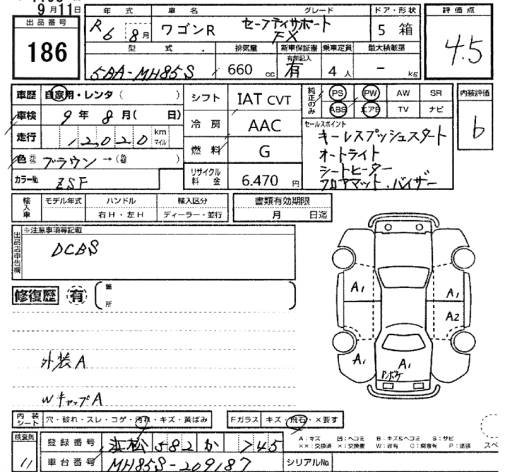 9月11日
年式 車名 グレード ドア・形状 評価点
出品番号 186
R6 8月 ワゴンR セーフティサポート FX 5 箱 4.5
型式 排気量 新車保証書 乗車定員 最大積載量
5BA-MH85S 660 cc 有 4人 - kg
車歴 自家用・レンタ( ) シフト IAT CVT
純正のみ PS PW AW SR 内装評価
ABS エアB TV ナビ b
車検 9年8月( 日) 冷房 AAC
セールスポイント
キーレスプッシュスタート
オートライト
シートヒーター
フロアマット、バイザー
走行 12020 km マイル 燃料 G
色 ブラウン→( )
カラーNo. ZSF リサイクル料金 6,470円
輸入車 モデル年式 ハンドル 輸入区分 書類有効期限
年 右H・左H ディーラー・並行 月 日迄
出品店申告欄 ※注意事項等記載
DCBS
修復歴 有 箇所
A1 A1 A2 A1 A1 A1
外装A
WキャップA
内装シート 穴・破れ・スレ・コゲ・汚れ・キズ・黄ばみ Fガラス キズ・飛石・×要す
検査員 11 登録番号
車台番号 MH85S-209187 シリアルNo.